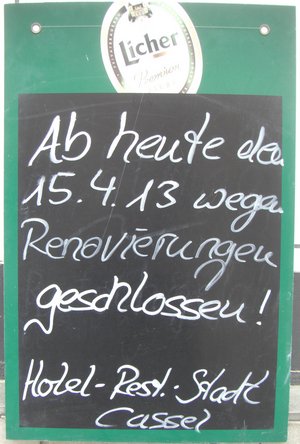 Licher
Premium
Ab heute den
15.4.13 wegen
Renovierungen
geschlossen!
Hotel-Rest.-Stadt
Cassel